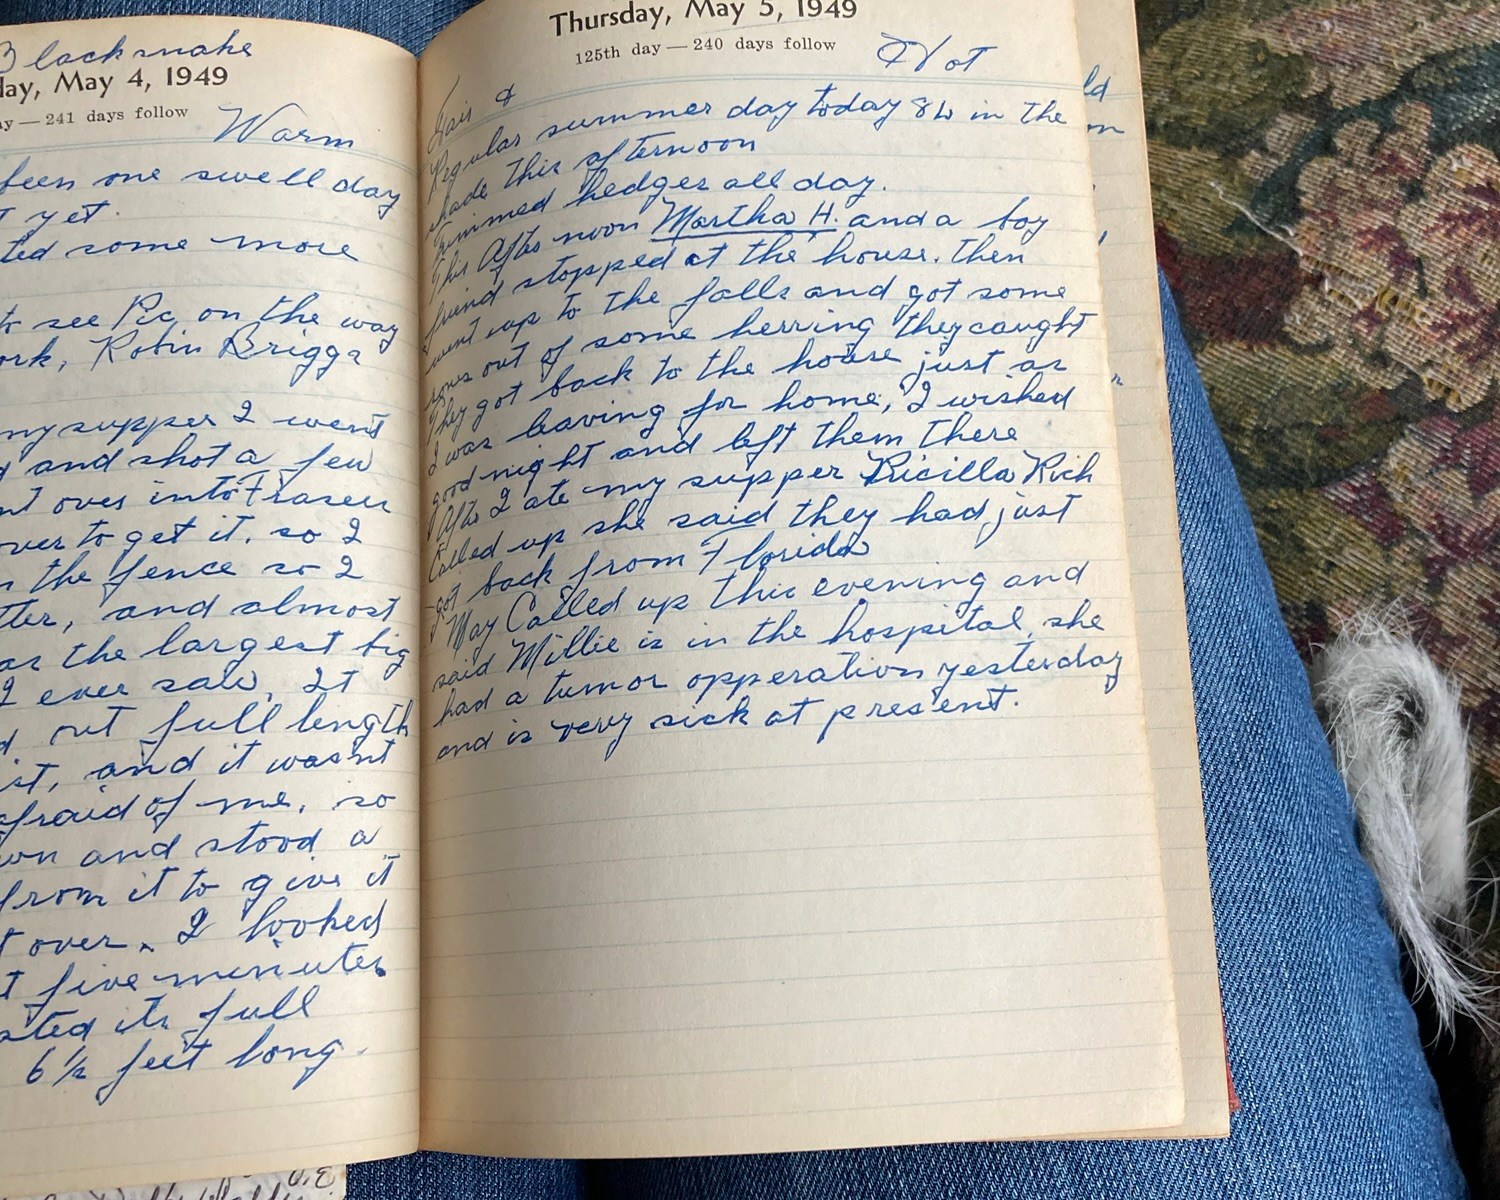 Blacksnake
day, May 4, 1949
ay — 241 days follow
Warm
been one swell day
t yet.
ted some more
to see Pic on the way
ork, Robin Brigga
my supper I went
d and shot a few
nt over into
over to get it, so I
n the fence so I
tter, and almost
as the largest big
I ever saw, It
d out full length
ist, and it wasnt
afraid of me, so
wn and stood a
from it to give it
t over. I looked
t five minutes
sted its full
6½ feet long.
Thursday, May 5, 1949
125th day — 240 days follow
Fair & Hot
Regular summer day today 86 in the
shade this afternoon
Trimmed hedges all day.
This After noon Martha H. and a boy
friend stopped at the house. then
went up to the falls and got some
rows out of some herring they caught
They got back to the house just as
I was leaving for home, I wished
good night and left them there
After I ate my supper Pricilla Rich
Called up she said they had just
got back from Florida
May Called up this evening and
said Millie is in the hospital, she
had a tumor opperation yesterday
and is very sick at present.
ld
on